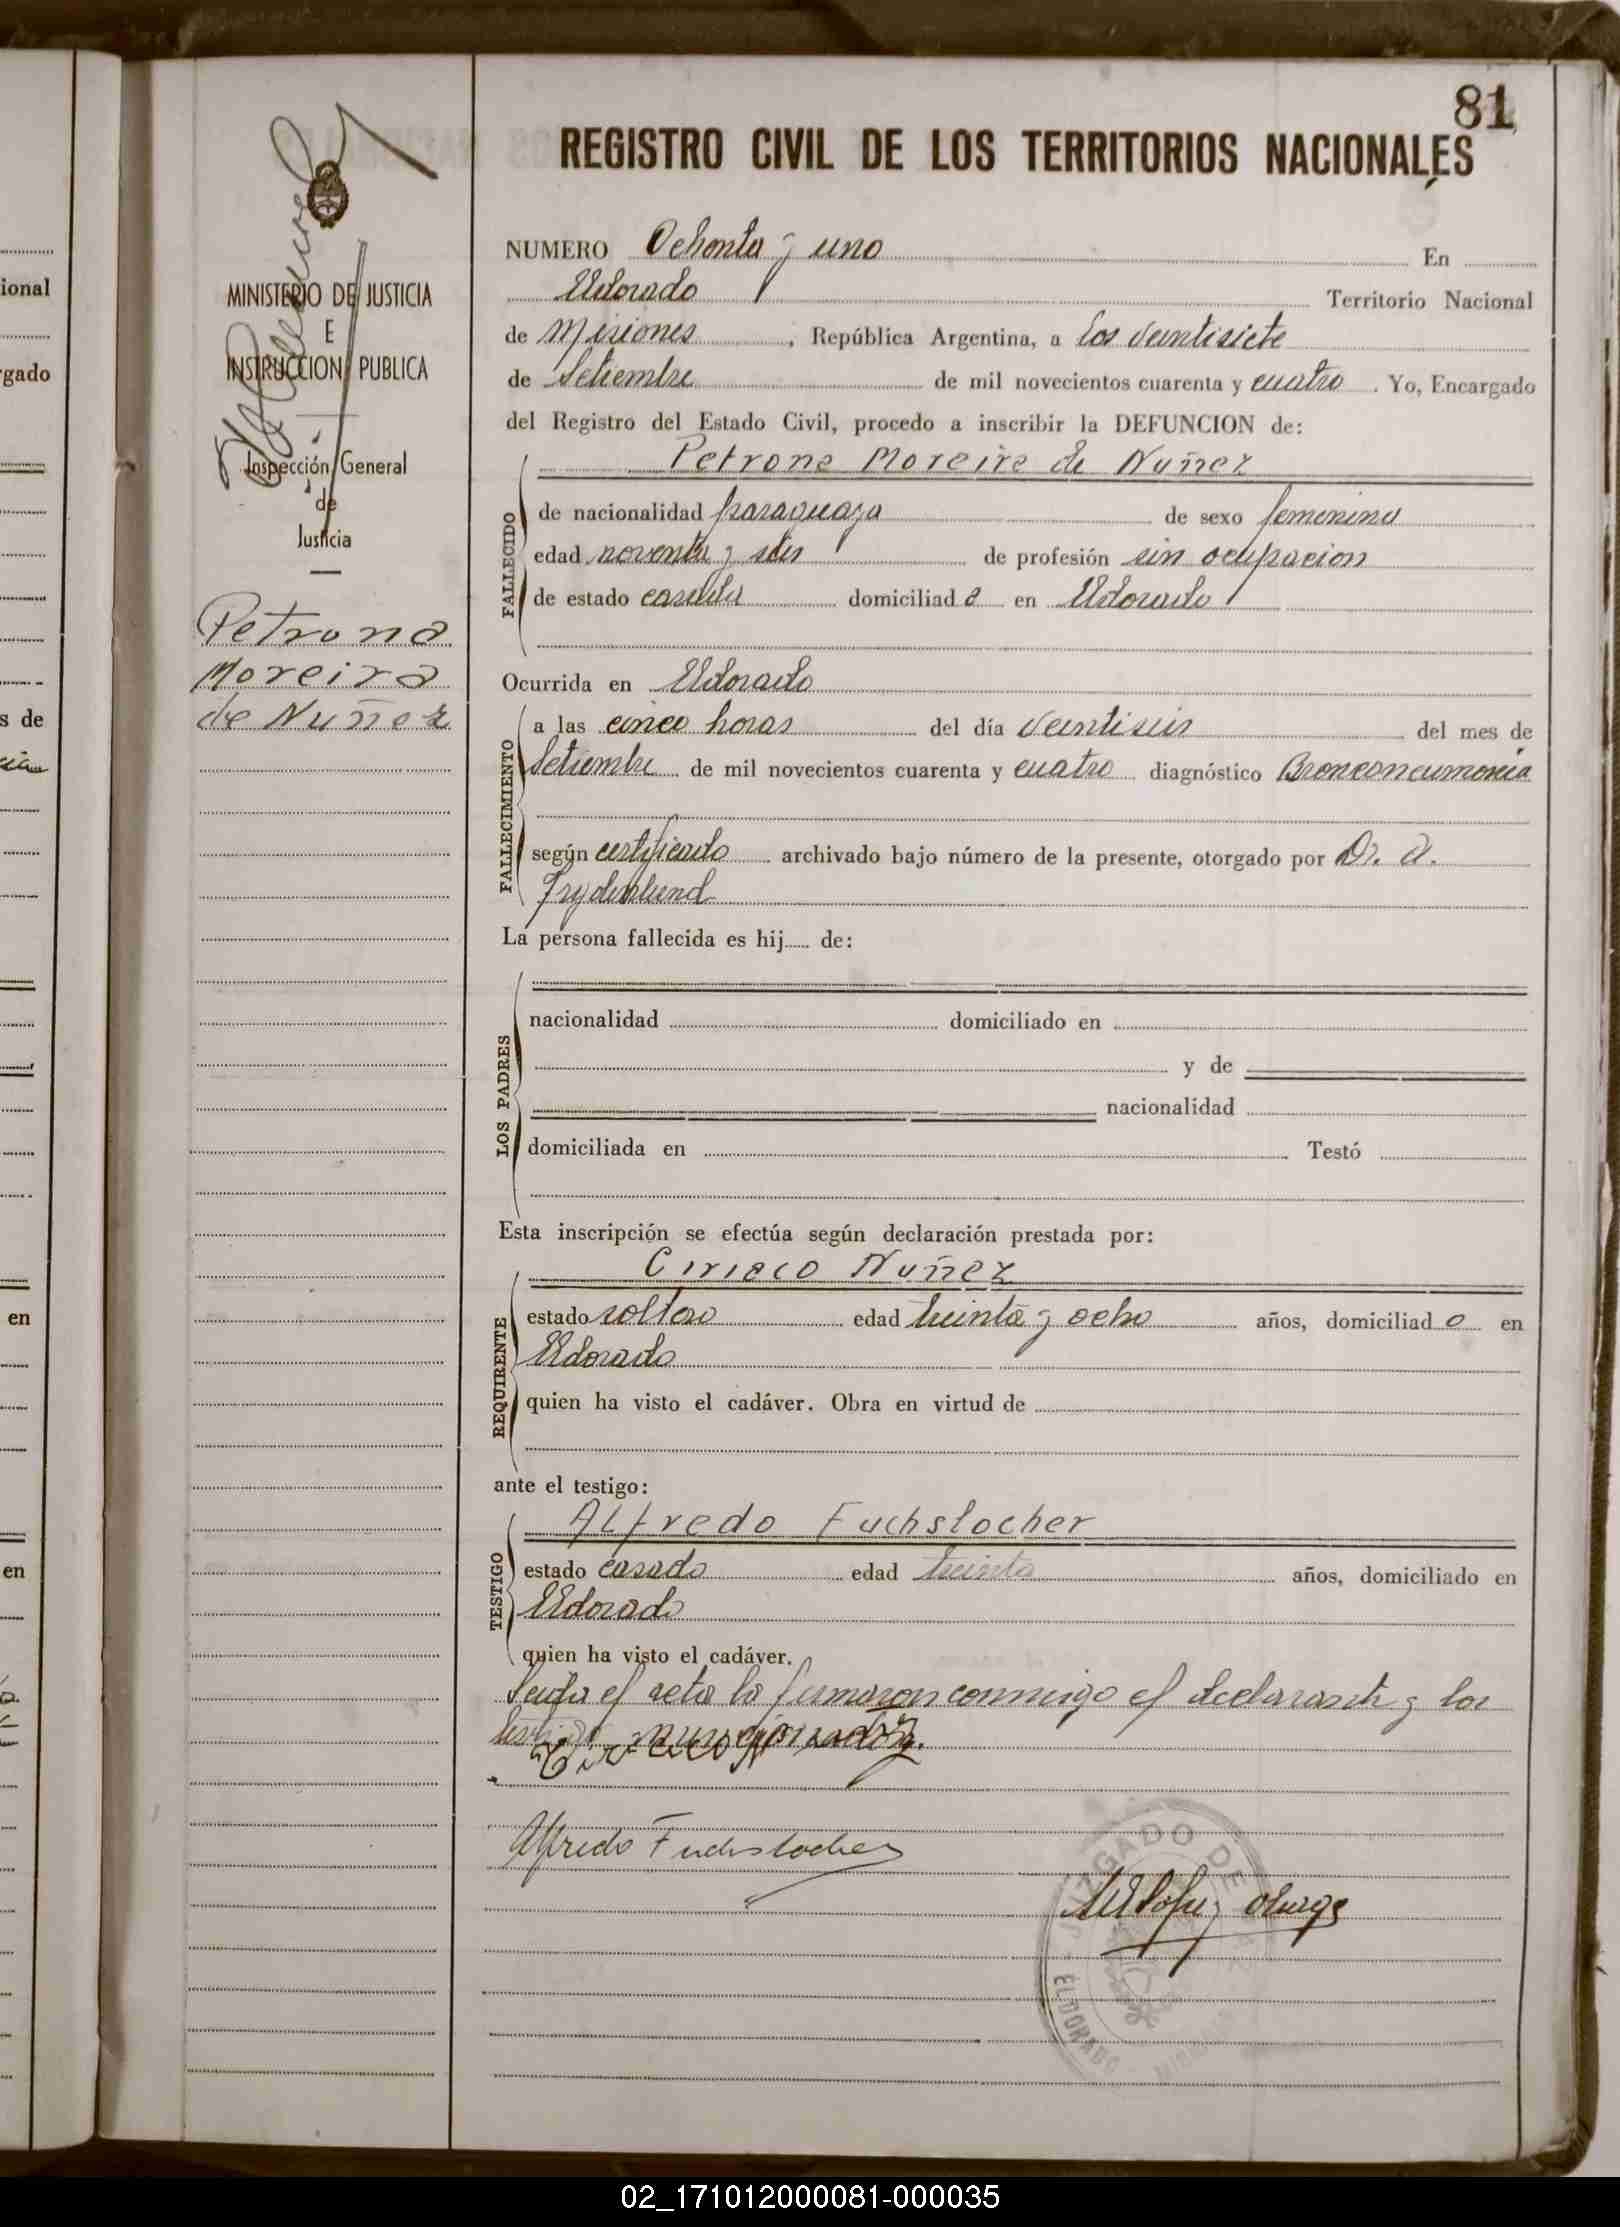 81
REGISTRO CIVIL DE LOS TERRITORIOS NACIONALES
MINISTERIO DE JUSTICIA
E
INSTRUCCION PUBLICA
Inspección General
de
Justicia
Petrona
Moreira
de Nuñez
NUMERO Ochenta y uno En
Eldorado Territorio Nacional
de Misiones, República Argentina, a los veintisiete
de Setiembre de mil novecientos cuarenta y cuatro. Yo, Encargado
del Registro del Estado Civil, procedo a inscribir la DEFUNCION de:
Petrona Moreira de Nuñez
FALLECIDO
de nacionalidad paraguaya de sexo femenino
edad noventa y seis de profesión sin ocupacion
de estado casada domiciliada en Eldorado
Ocurrida en Eldorado
FALLECIMIENTO
a las cinco horas del día veintiseis del mes de
Setiembre de mil novecientos cuarenta y cuatro diagnóstico Bronconeumonia
según certificado archivado bajo número de la presente, otorgado por Dr. A.
Frydenlund
La persona fallecida es hij de:
LOS PADRES
nacionalidad domiciliado en
y de
nacionalidad
domiciliada en Testó
Esta inscripción se efectúa según declaración prestada por:
Ciriaco Nuñez
REQUIRENTE
estado soltero edad treinta y ocho años, domiciliado en
Eldorado
quien ha visto el cadáver. Obra en virtud de
ante el testigo:
Alfredo Fuchslocher
TESTIGO
estado casado edad treinta años, domiciliado en
Eldorado
quien ha visto el cadáver.
Leida el acta la firmaron conmigo el declarante y los
testigo mencionados.
Alfredo Fuchslocher
JUZGADO DE
ELDORADO
MISIONES
ional
rgado
s de
en
en
02_171012000081-000035